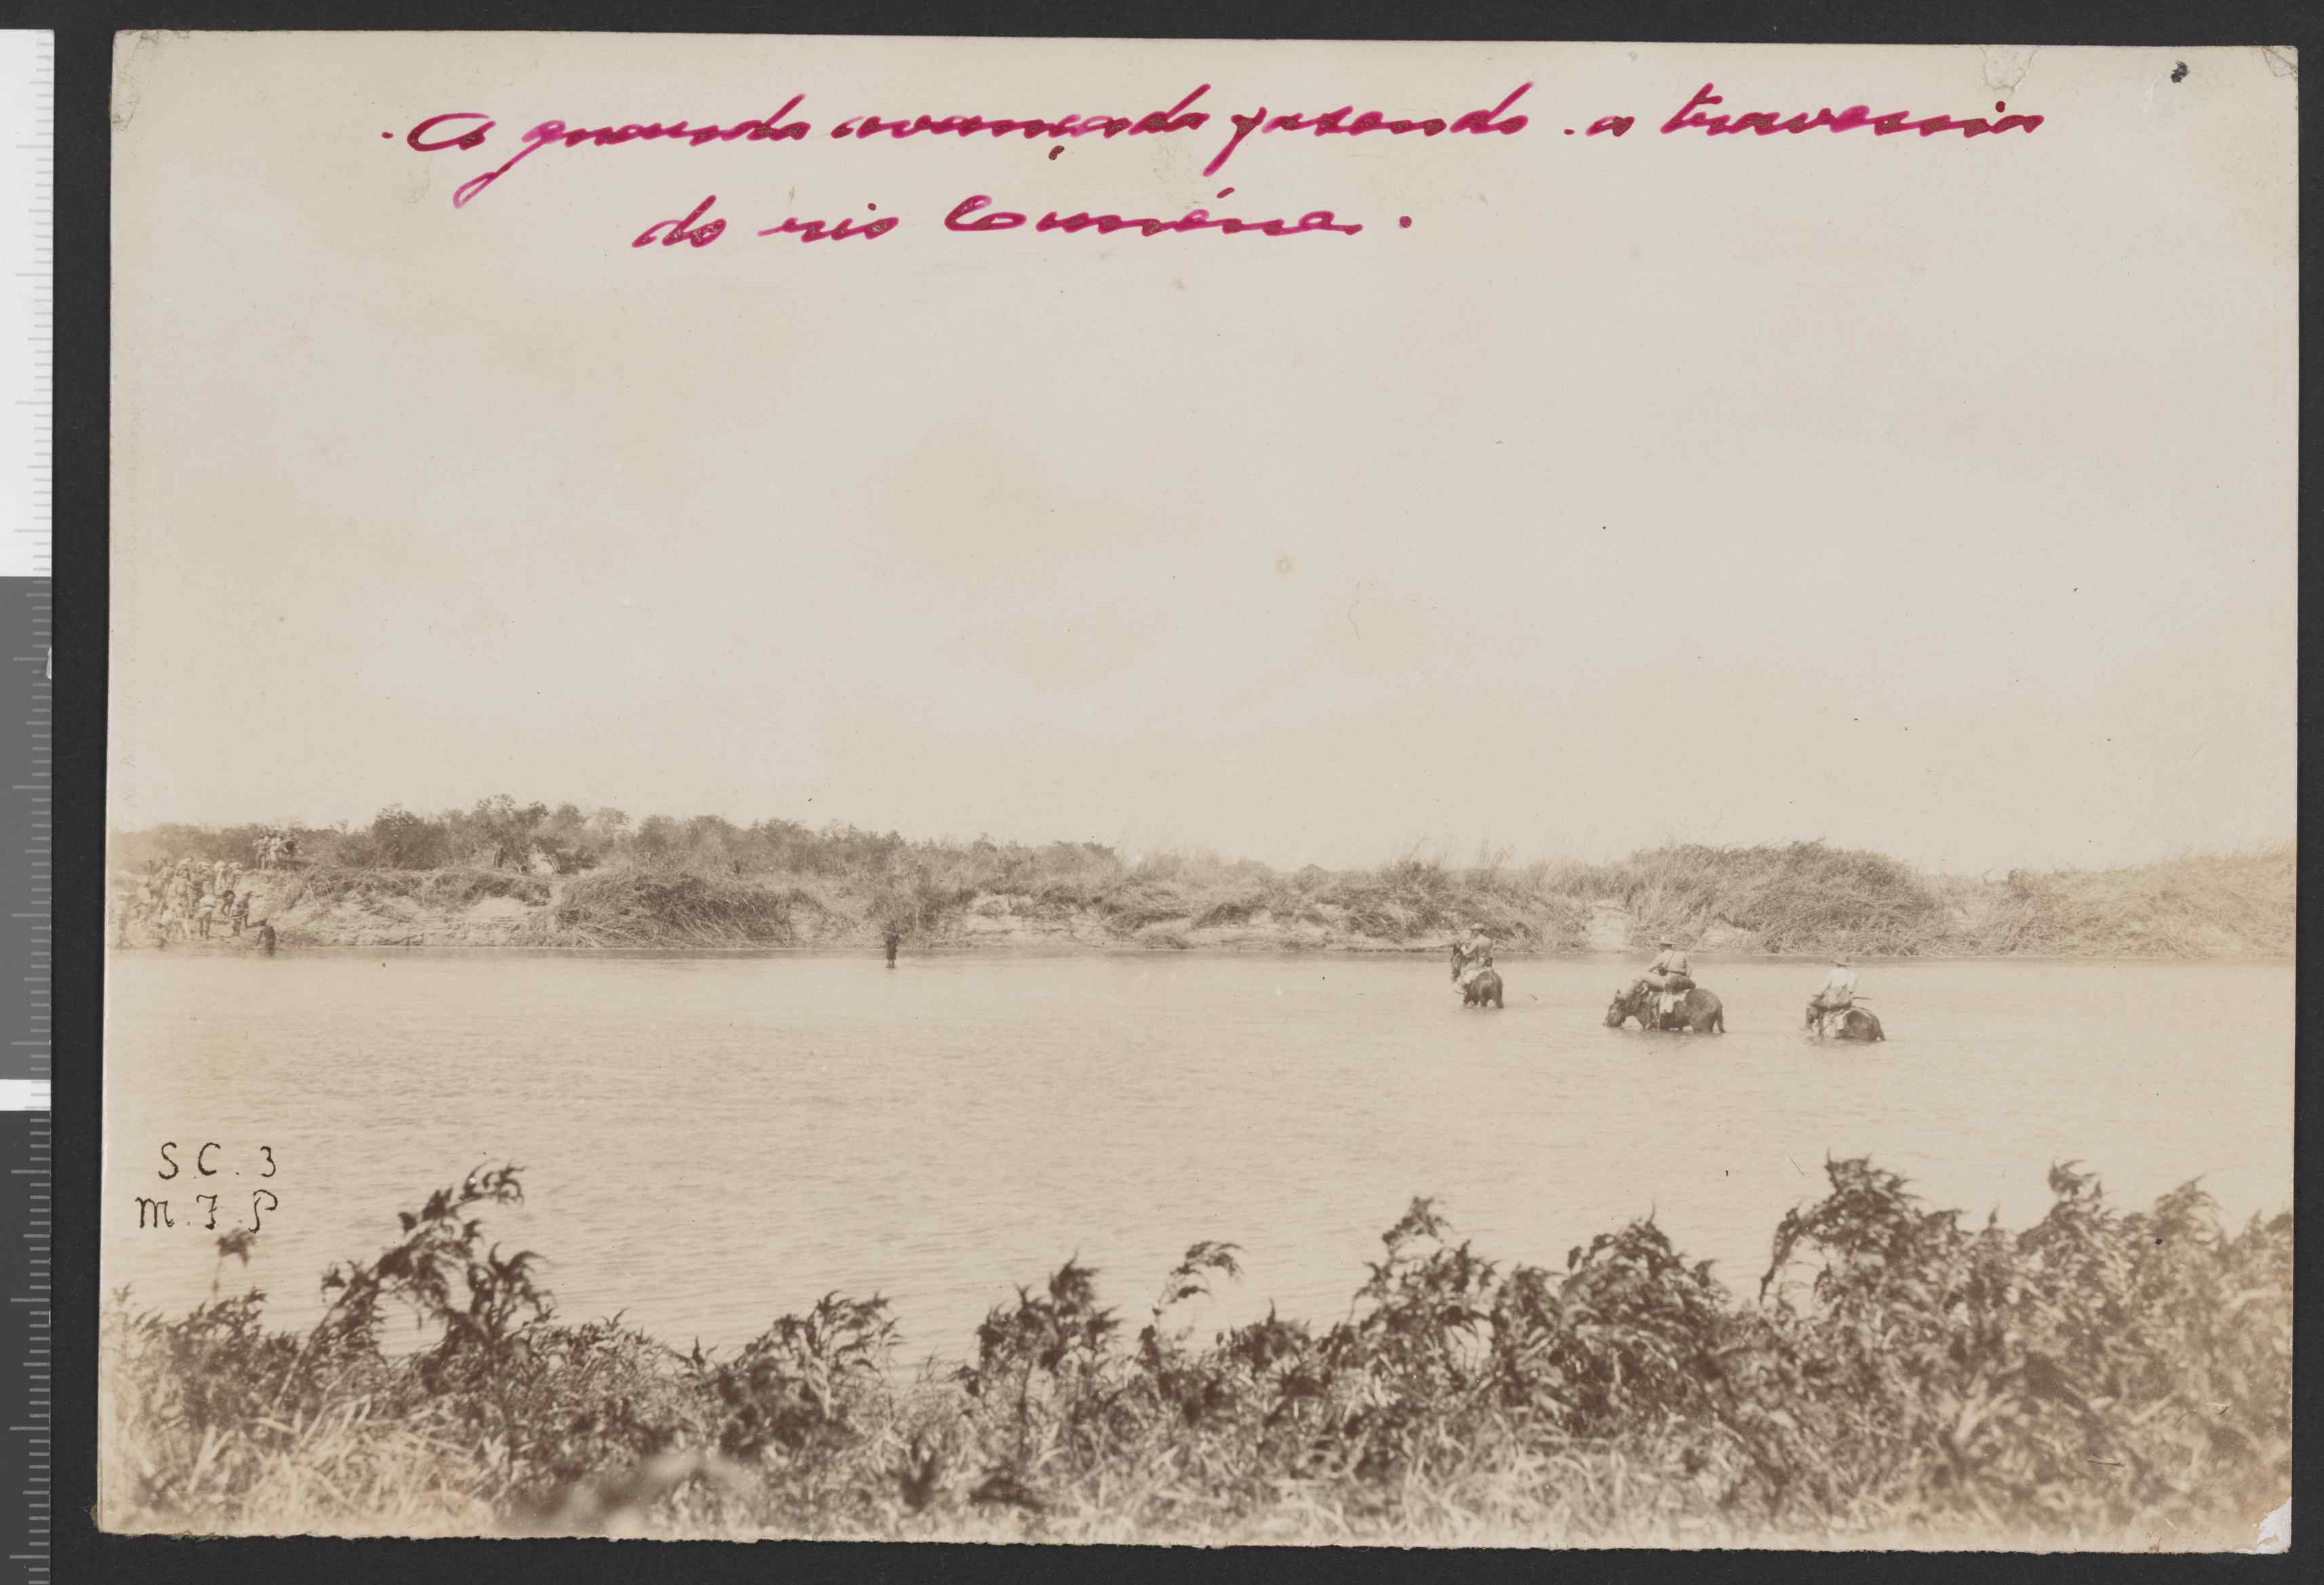 A guarda avançada passando a travessia
do rio Cunéne.
S.C. 3
M.F.P